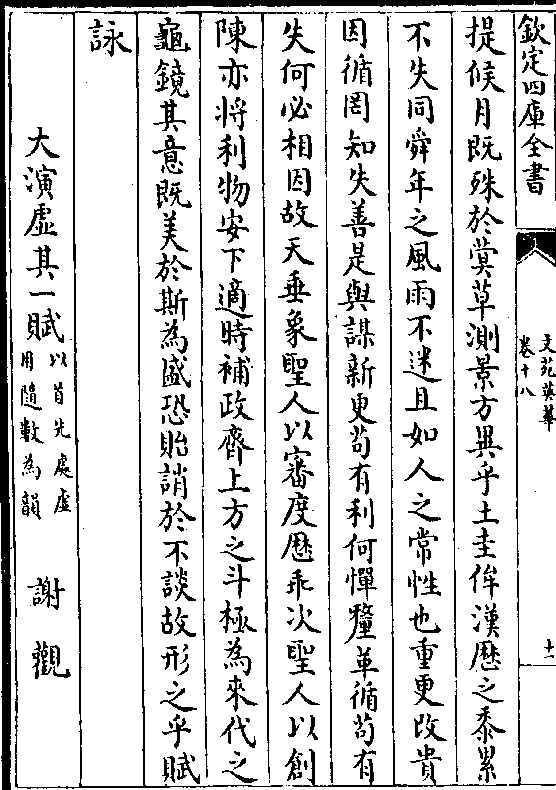 欽定四庫全書
文苑英華
卷十八
十一
提候月既殊於蓂草測景方異乎土圭侔漢歴之黍累
不失同舜年之風雨不迷且如人之常性也重更改貴
因循罔知失善是與謀新更苟有利何憚釐革循苟有
失何必相因故天垂象聖人以審度歴乖次聖人以創
陳亦将利物安下適時補政齊上方之斗極為來代之
龜鏡其意既美於斯為盛恐貽誚於不談故形之乎賦
詠
大演虚其一賦
以首先處虚
用隨數為韻
謝觀